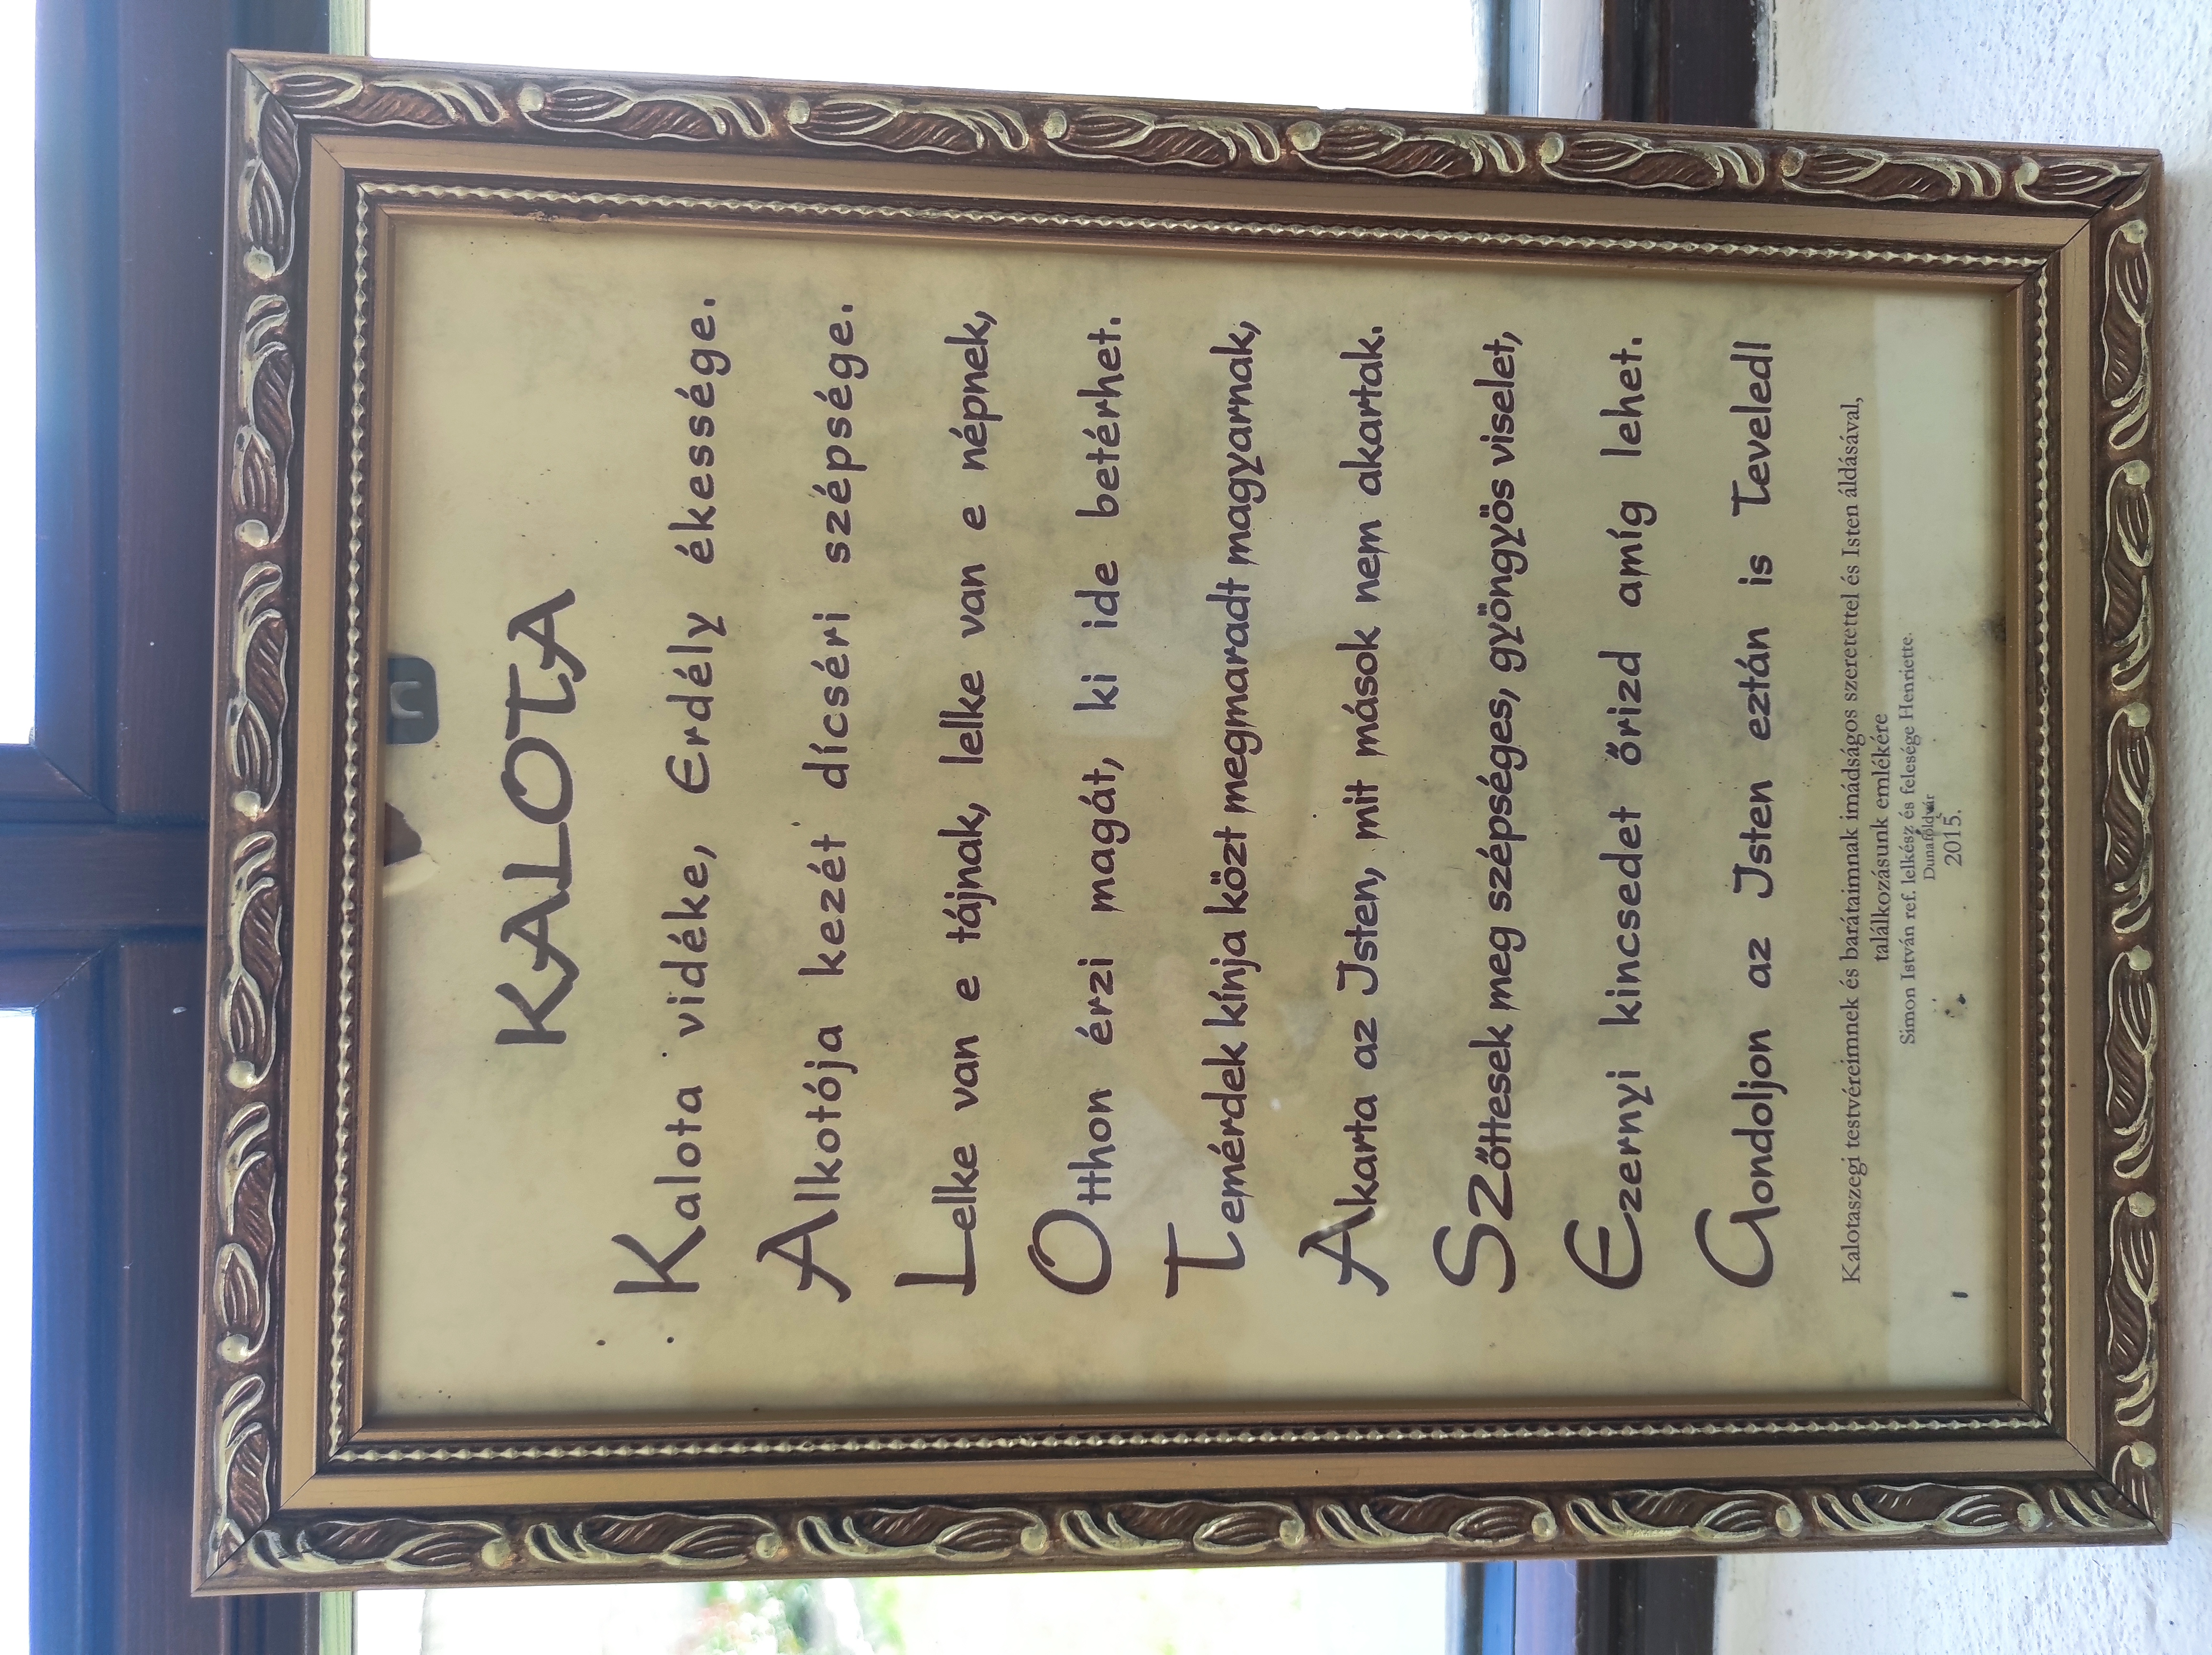 KALOTA
Kalota vidéke, Erdély ékessége.
Alkotója kezét dícséri szépsége.
Lelke van e tájnak, lelke van e népnek,
Otthon érzi magát, ki ide betérhet.
Temérdek kínja közt megmaradt magyarnak,
Akarta az Isten, mit mások nem akartak.
Szőttesek meg szépséges, gyöngyös viselet,
Ezernyi kincsedet őrizd amíg lehet.
Gondoljon az Isten eztán is Teveled!
Kalotaszegi testvéreimnek és barátaimnak imádságos szeretettel és Isten áldásával,
találkozásunk emlékére
Simon István ref. lelkész és felesége Henriette.
Dunaföldvár
2015.